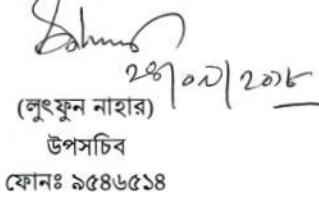 ২৪/০১/২০১৮
(লুৎফুন নাহার)
উপসচিব
ফোনঃ ৯৫৪৬৫১৪